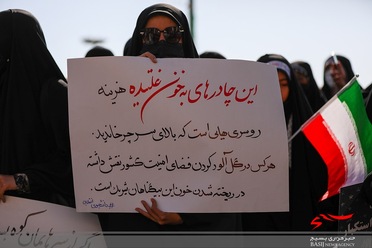 این چادرهای به خون غلتیده هزینه
روسری هایی است که بالای سر چرخاندید.
هرکس در گل آلود کردن فضای امنیت کشور نقش داشته
در ریخته شدن خون این بیگناهان شریک است.
خبرگزاری بسیج
BASIJ NEWSAGENCY